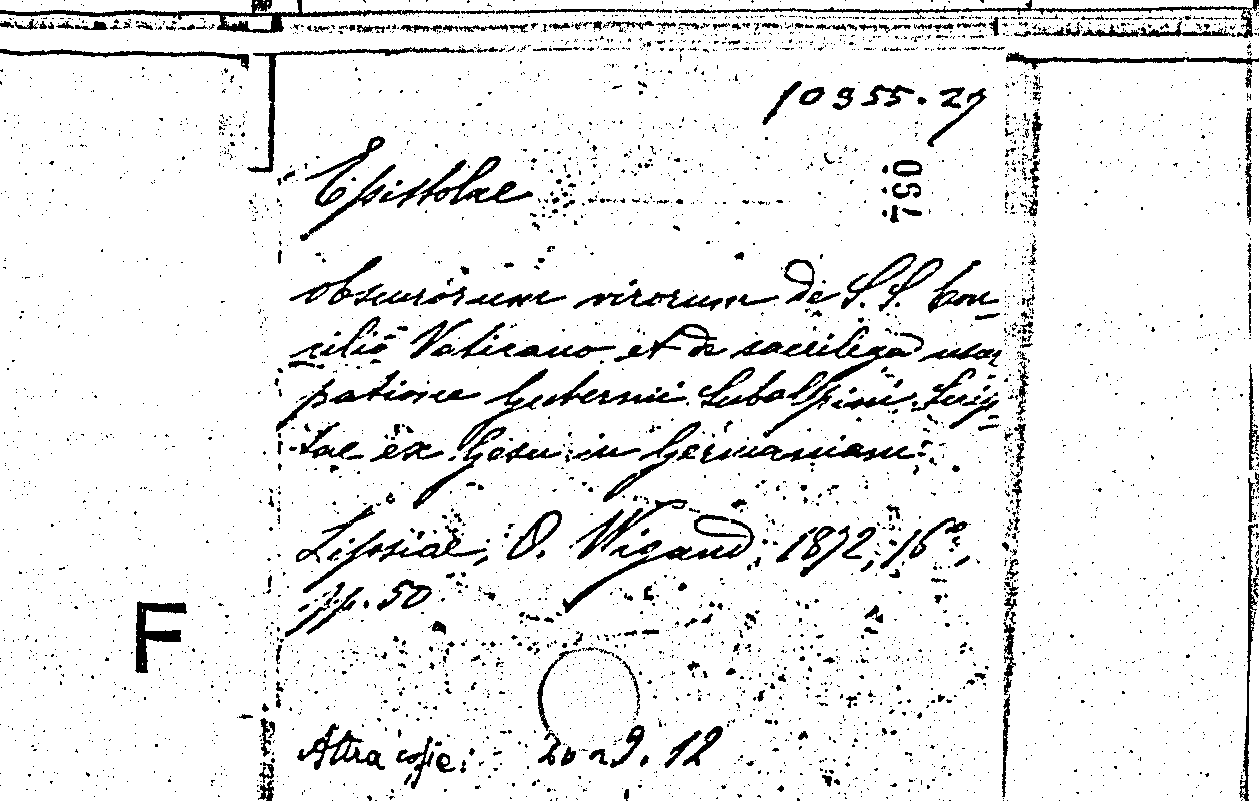 10955.27
790
Epistolae
obscurorum virorum de S. S. Con-
cilio Vaticano et de sacrilega usur
patione Gubernii Subalpini Scrip-
tae ex Gesu in Germaniam.
Lipsiae, O. Wigand, 1872, 16°,
pp. 50
F
Altra copie: 20 n9. 12